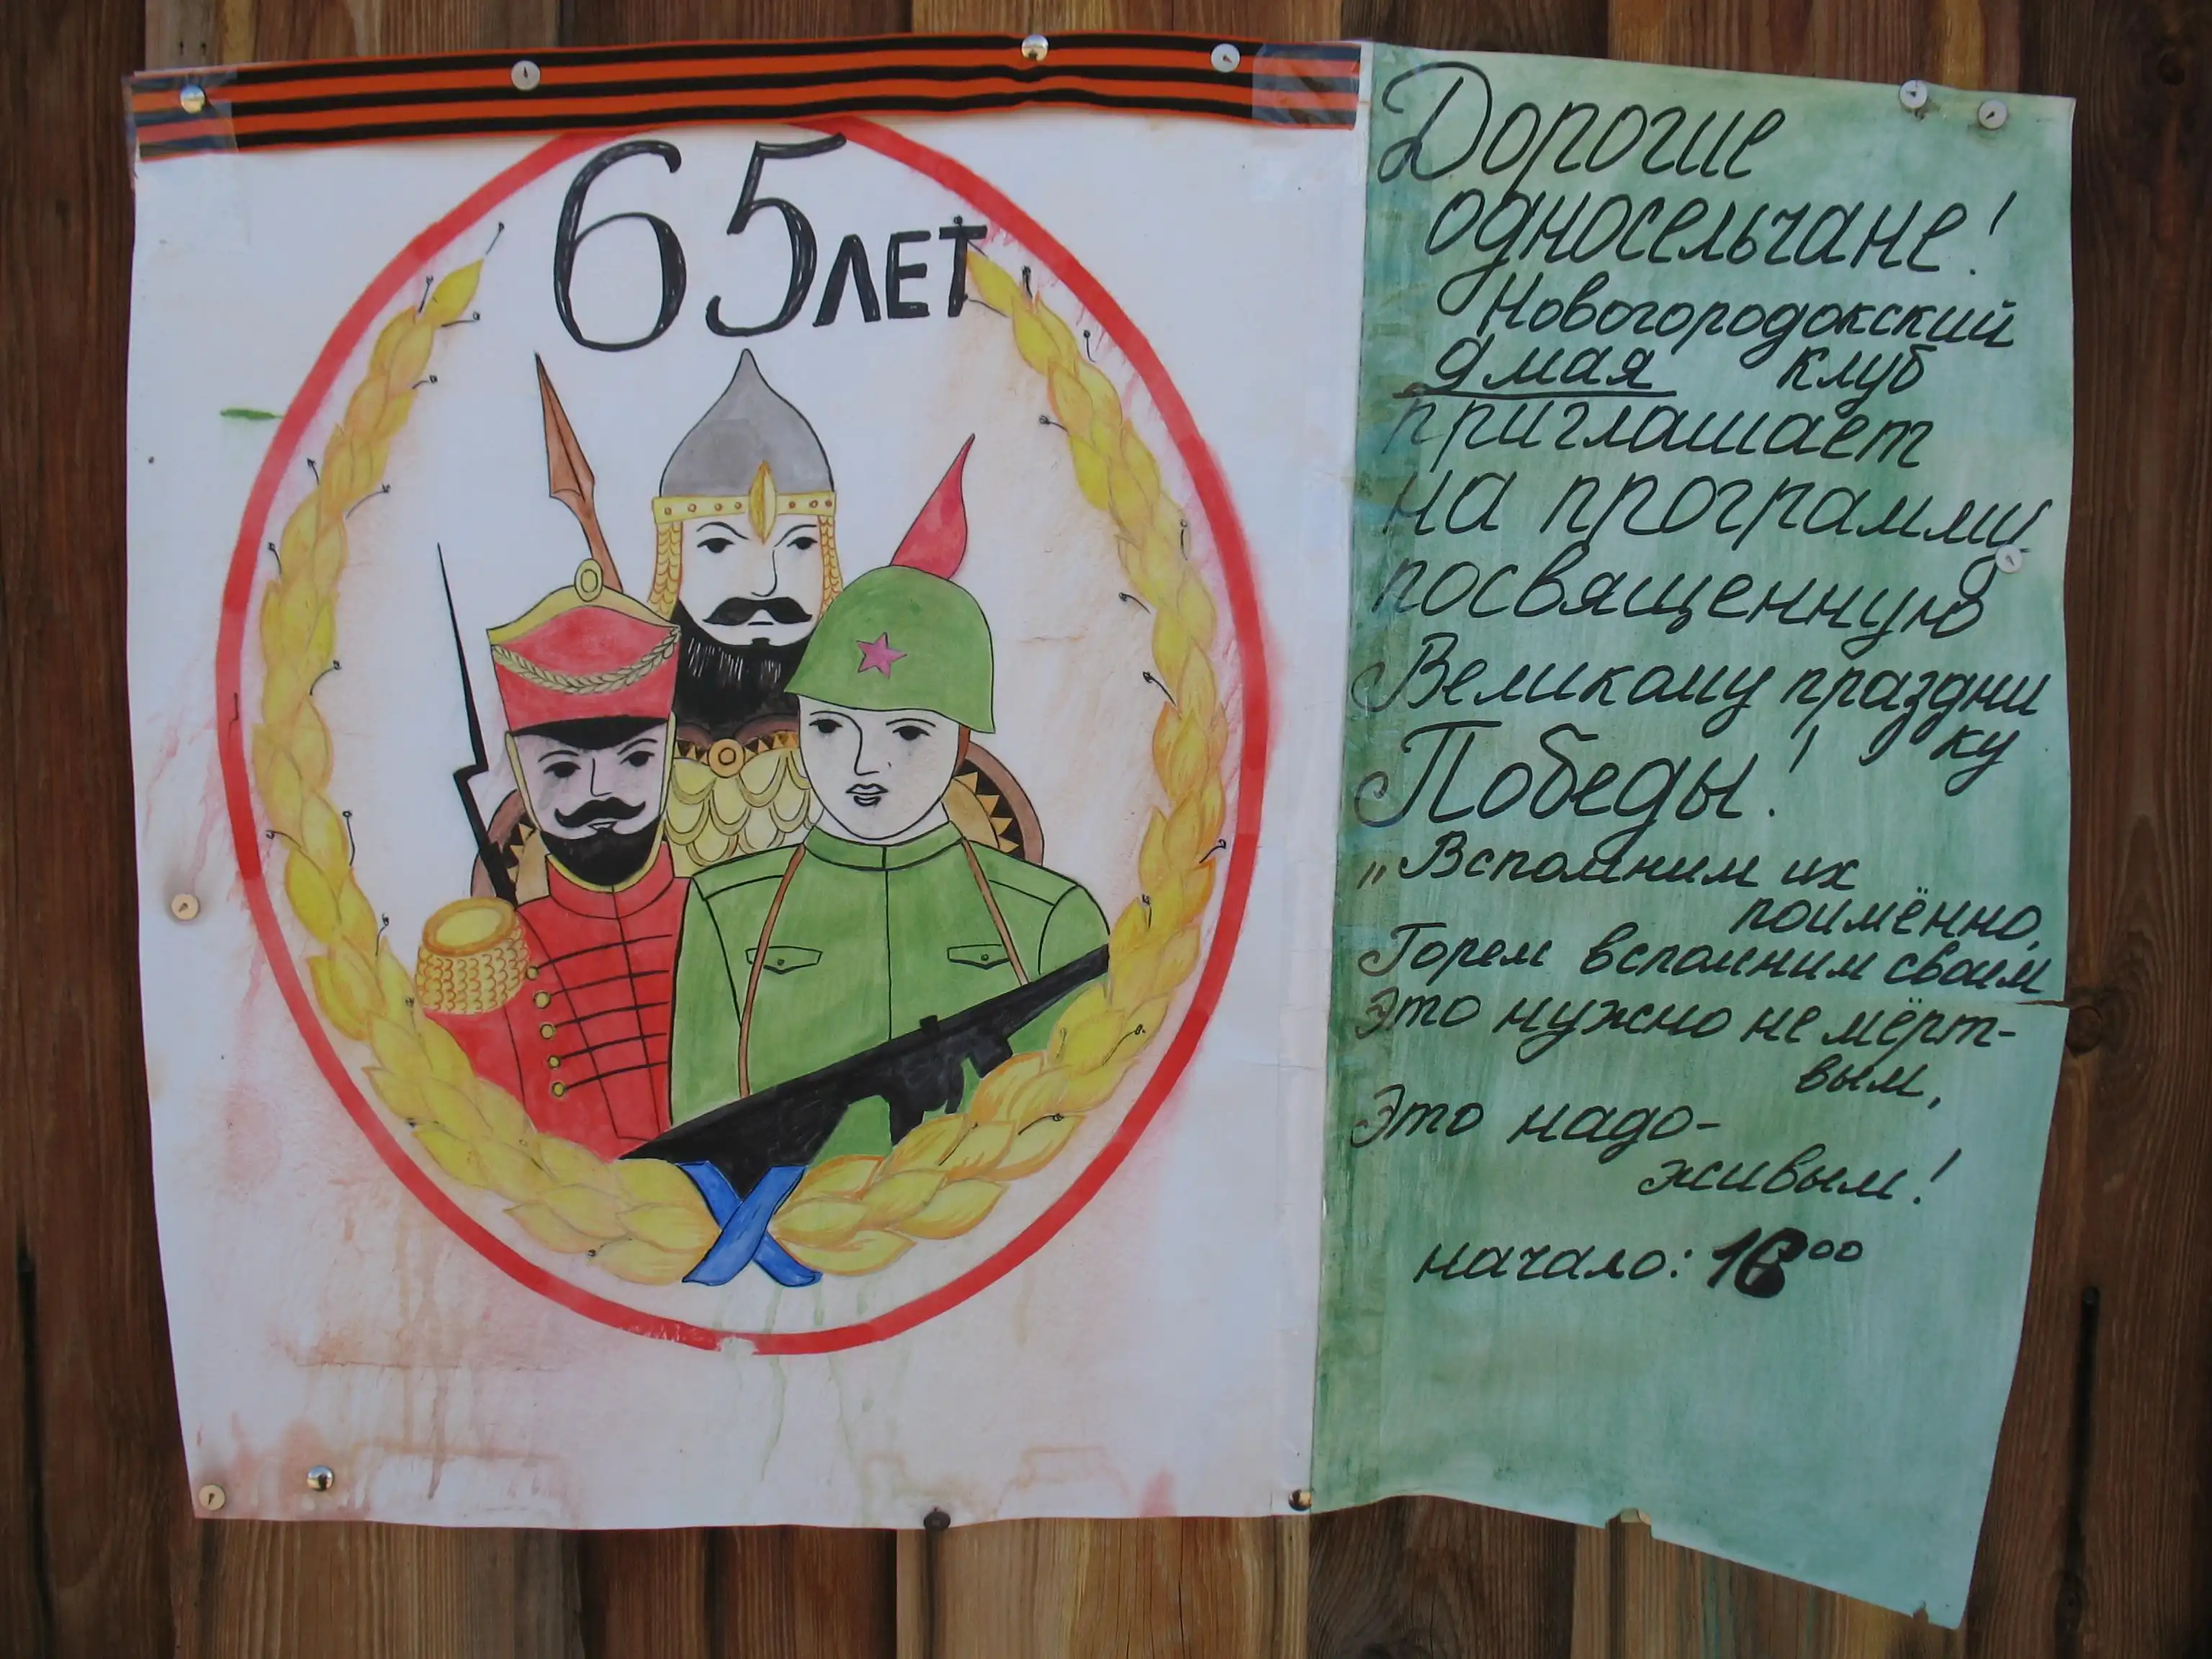 65 ЛЕТ
Дорогие
односельчане!
Новогородокский
9 мая клуб
приглашает
на программу
посвященную
Великому праздни
ку
Победы!
„Вспомним их
поимённо,
Горем вспомним своим
Это нужно не мёрт-
вым,
Это надо-
живым!
начало: 00